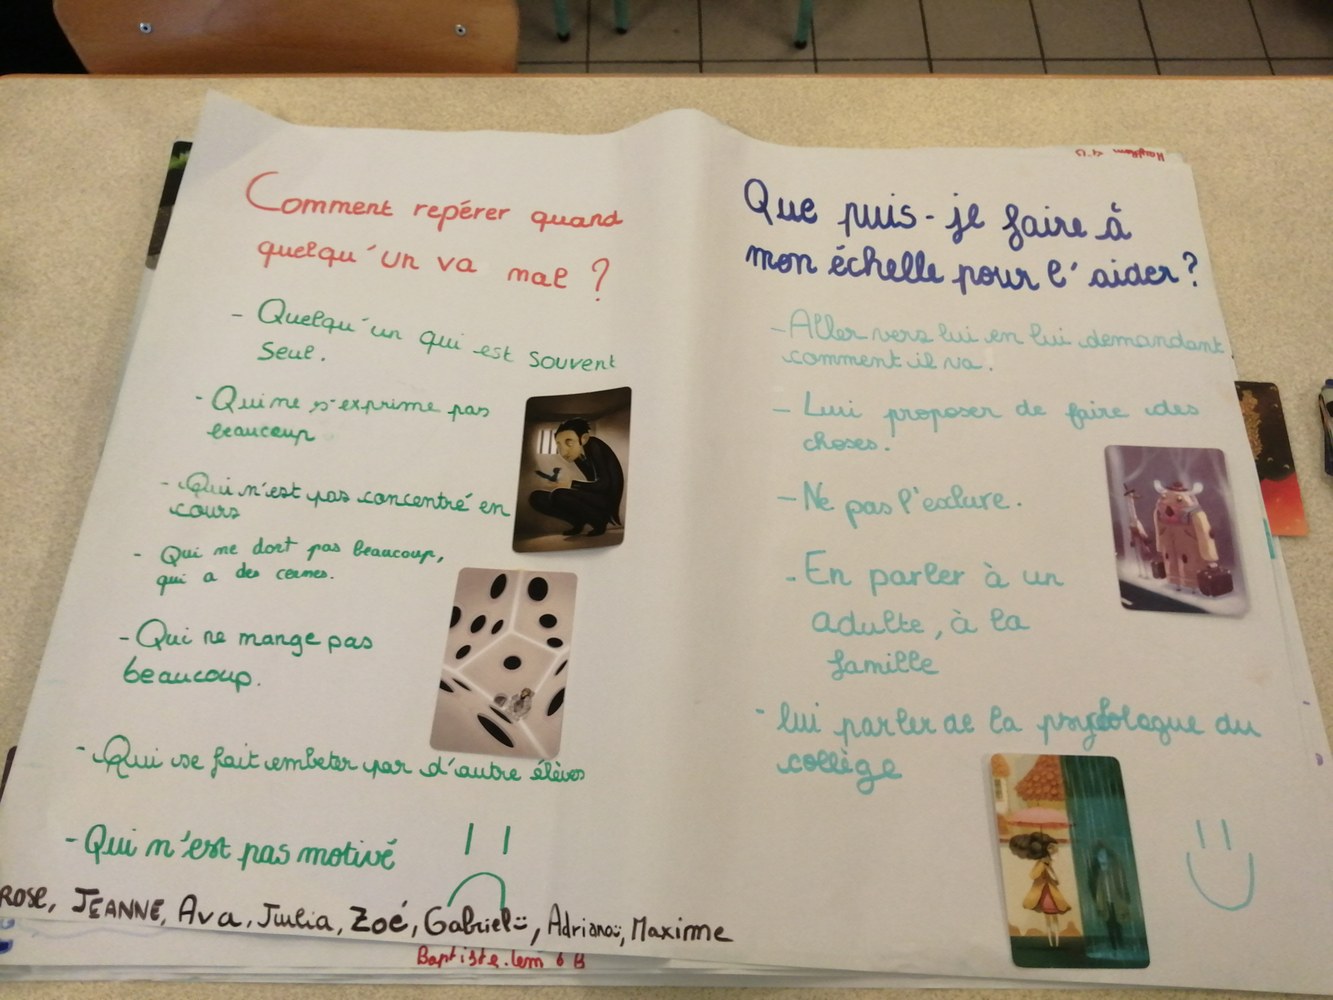 Comment repérer quand
quelqu'un va mal ?
- Quelqu'un qui est souvent
seul.
- Qui ne s'exprime pas
beaucoup
- Qui n'est pas concentré en
cours
- Qui ne dort pas beaucoup,
qui a des cernes.
- Qui ne mange pas
beaucoup.
- Qui se fait embeter par d'autre élèves
- Qui n'est pas motivé
ROSE, JEANNE, Ava, Julia, Zoé, Gabriel, Adriana, Maxime
Baptiste.lem 6 B
Que puis-je faire à
mon échelle pour l'aider ?
- Aller vers lui en lui demandant
comment il va.
- Lui proposer de faire des
choses.
- Ne pas l'exclure.
- En parler à un
adulte, à la
famille
- lui parler de la psychologue du
collège